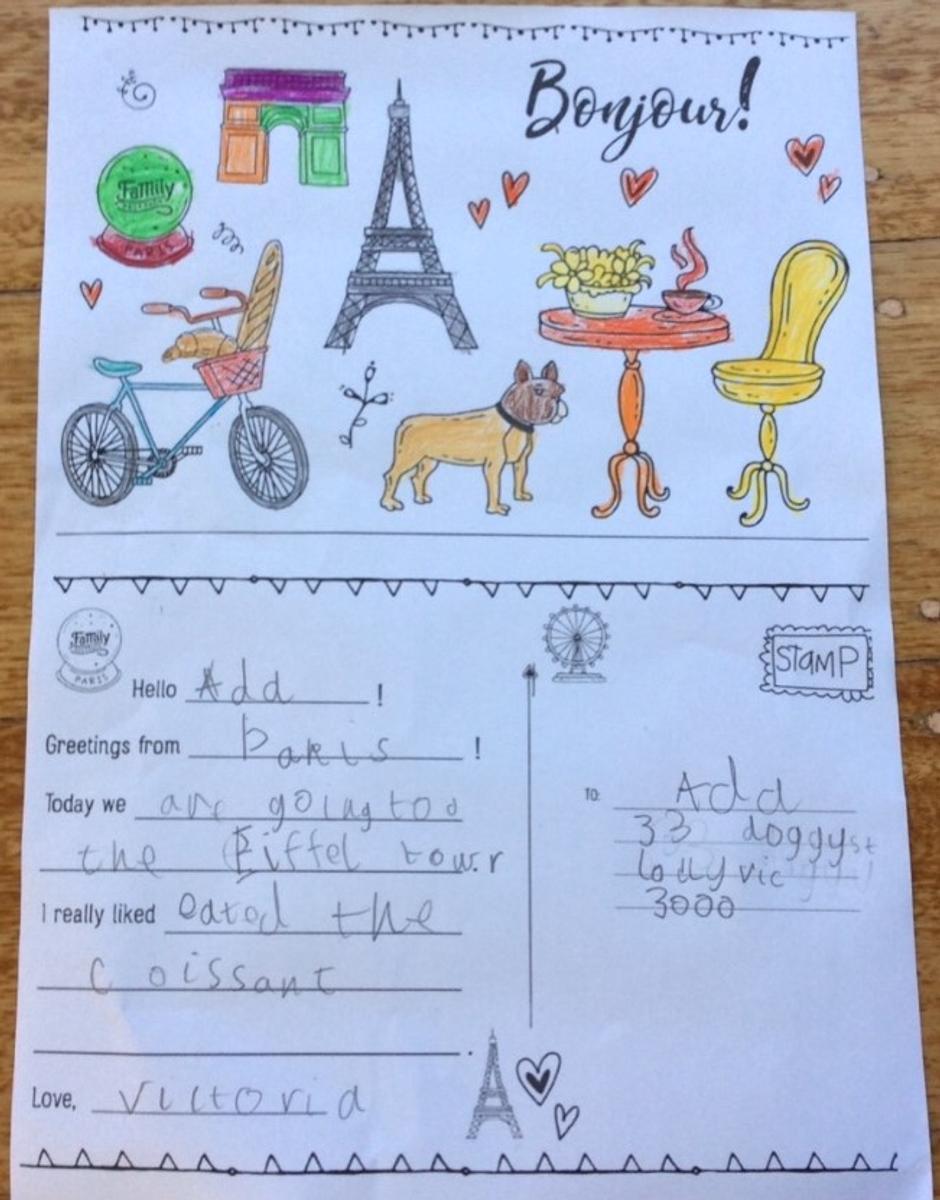 Bonjour!
Family
PARIS
Family
PARIS
STAMP
Hello Add !
Greetings from Paris !
Today we are going too
the Eiffel towr
I really liked eated the
coissant
.
Love, Victoria
TO: Add
33 doggy st
lolly vic
3000